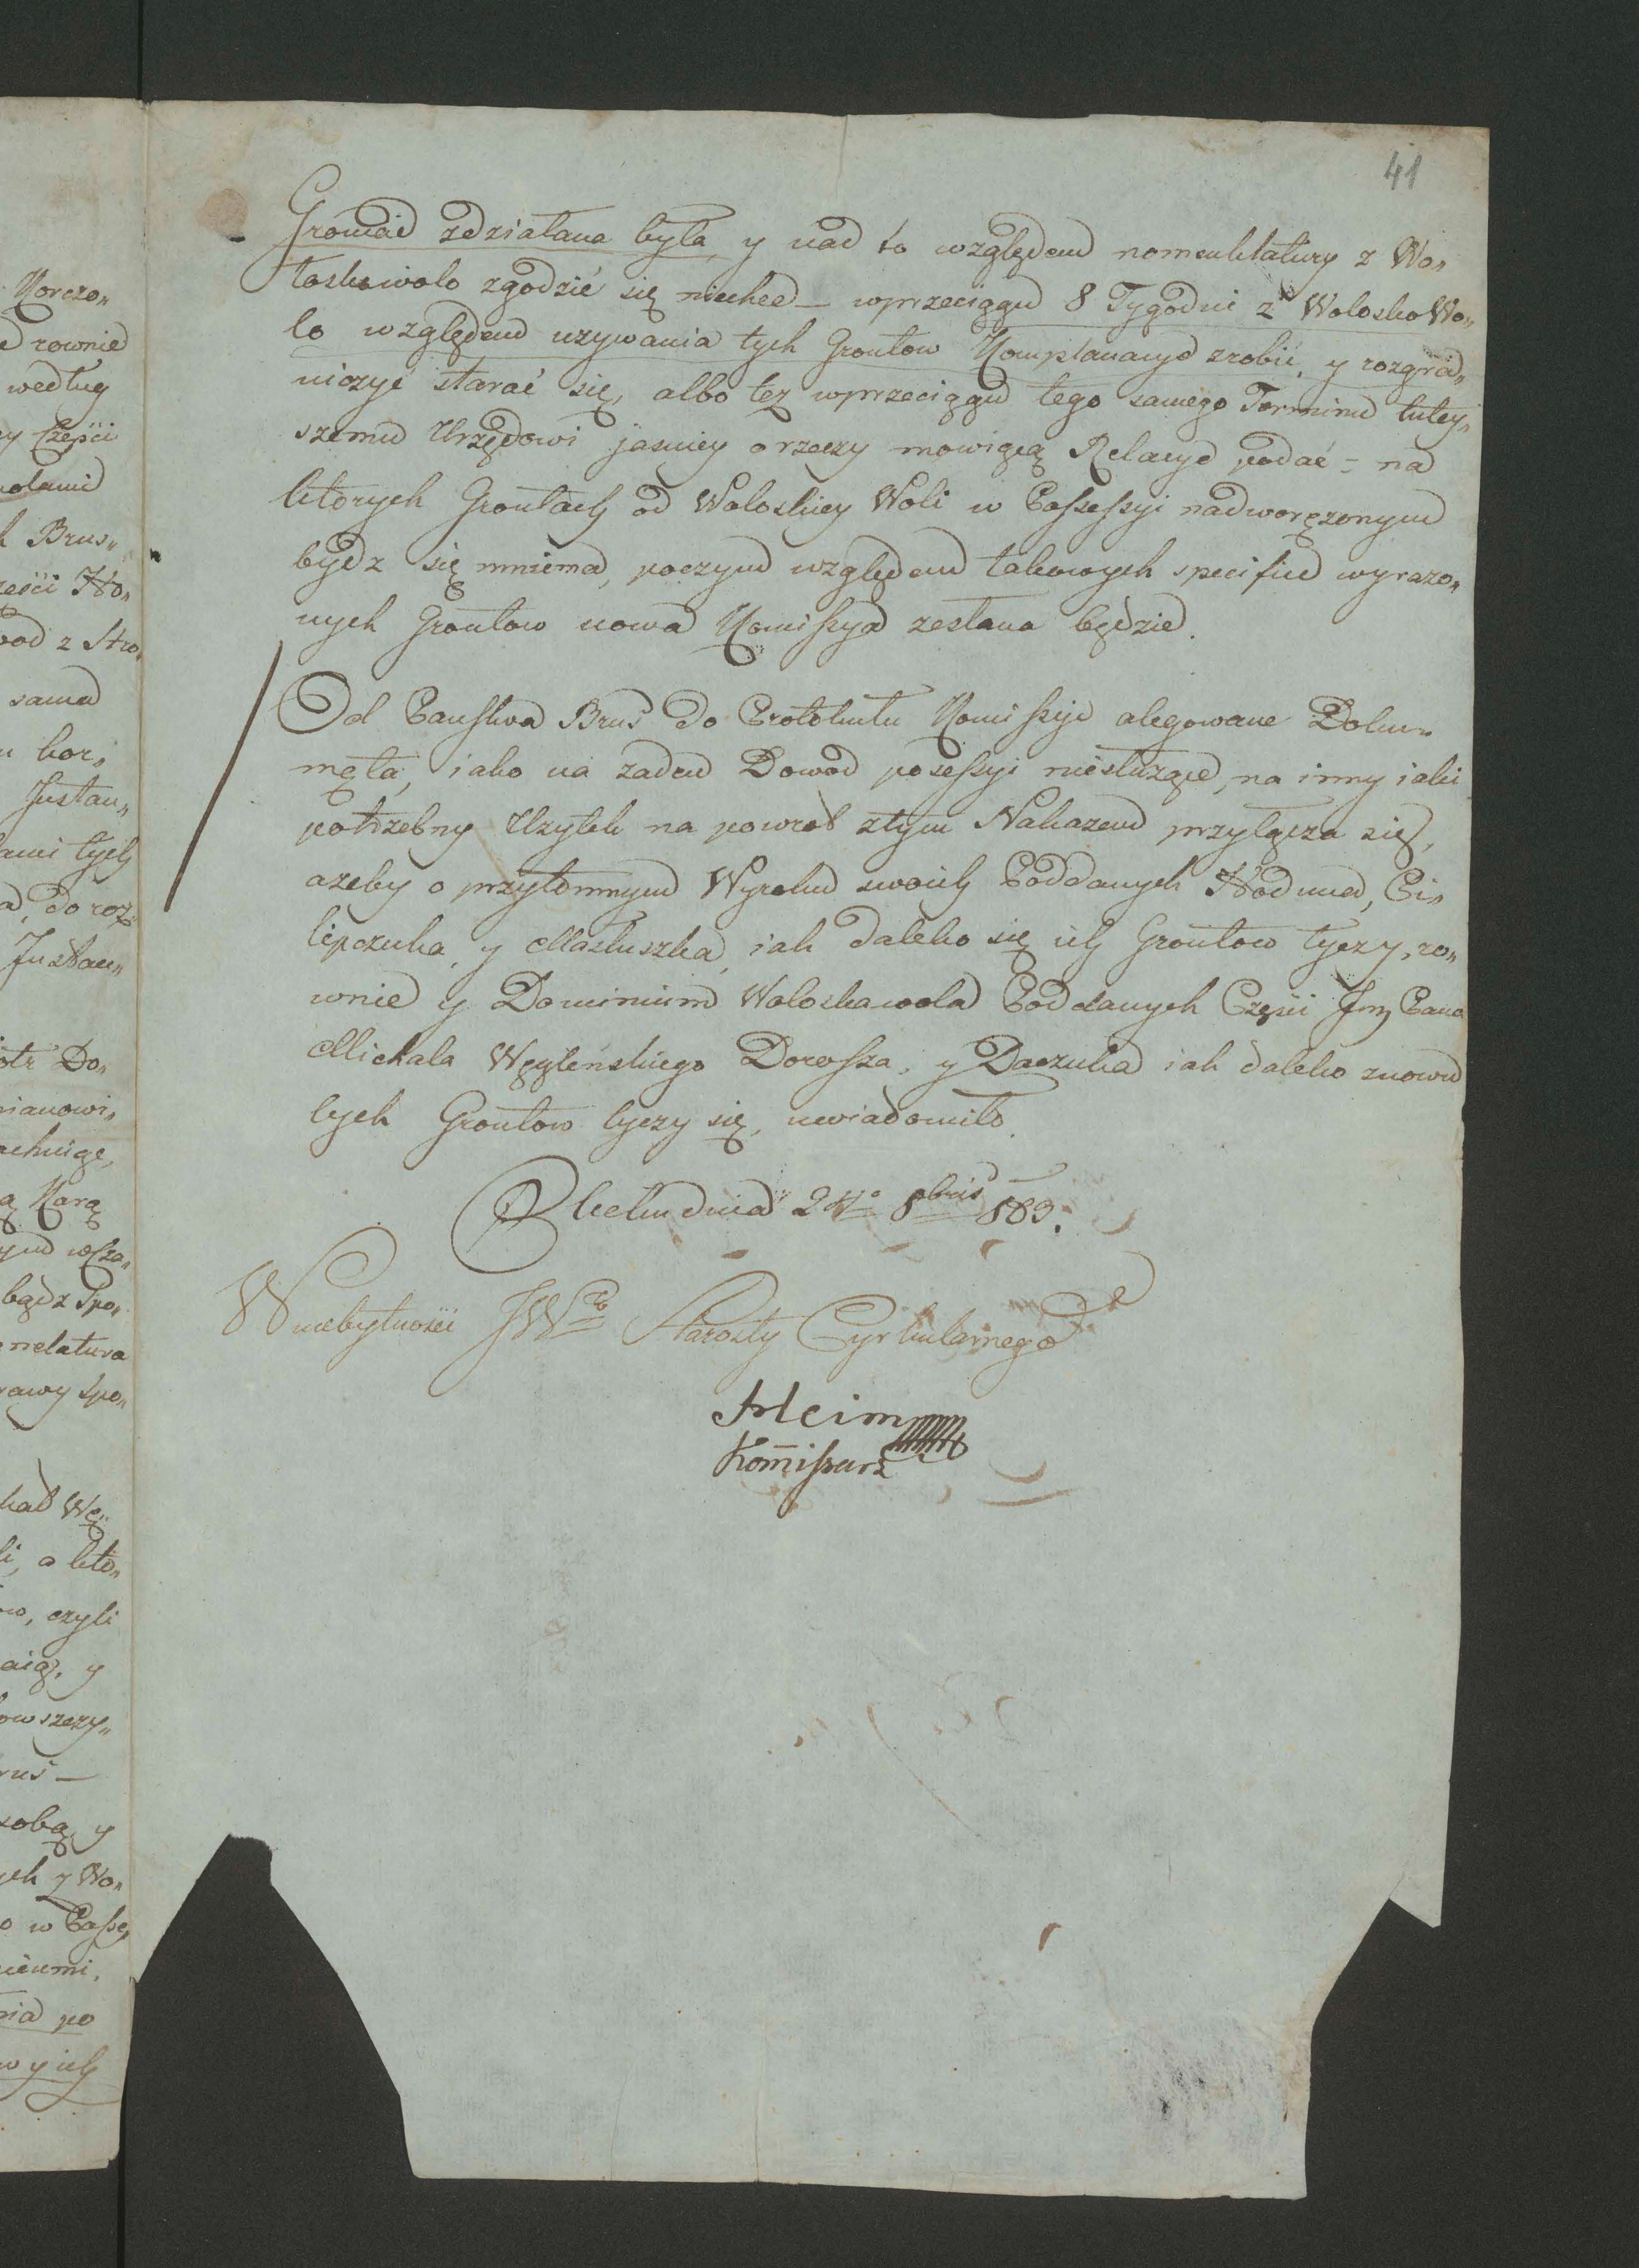 41
Gromad zdziałana była, y nad to względem nomenklatury z Wo„
łoskowolo zgodzić się niechce – wprzeciągu 8 Tygodni z Wolosko Wo„
lo względem uzywania tych Grontow Komplanacye zrobić, y rozgra„
niczyć starać się, albo tez wprzeciągu tego samego Terminu tutey„
szemu Urzędowi jasniey o rzeczy mowiącą Relacye podać – na
ktorych Grontach od Woloskiey Woli w Possessyi nadworężonym
bydz się mniema, poczym względem takowych specifice wyrażo„
nych Grontow nowa Komissya zesłana będzie.
Od Państwa Brus do Protokułu Komissyi alegowane Doku„
męta, iako na zaden Dowod posessyi niesłuzące, na inny iaki
potrzebny Uzytek na powrot z tym Nakazem przyłącza się,
azeby o przytomnym Wyroku swoich Poddanych Hoduna, Pi„
lipczuka, y Masłuszka, iak daleko się ich Grontow tyczy, ro„
wnie y Dominium Woloskawola Poddanych Częsci Jmę Pana
Michala Węgleńskiego Dorosza, y Daczuka iak daleko znowu
tych Grontow tyczy się, uwiadomiło.
dnia 24º 8bris 803.
W niebytności JWo Starosty Cyrkularnego
Heim
Kom̄issarz
Korczo„
rownie
według
Częsci
Brus„
Ho„
sama
Justan„
tych
do roz„
Justan„
Do„
Karą
bądz Spo„
nelatura
spo„
Wę„
a kto„
czyli
y
sobą y
y Wo„
w Posse„
po
y ich